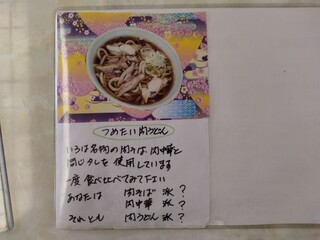 つめたい肉うどん
いろは名物の肉そば、肉中華と
同じタレを使用しています
一度食べ比べてみて下さい
あなたは 肉そば 派?
肉中華 派?
それとも 肉うどん 派?